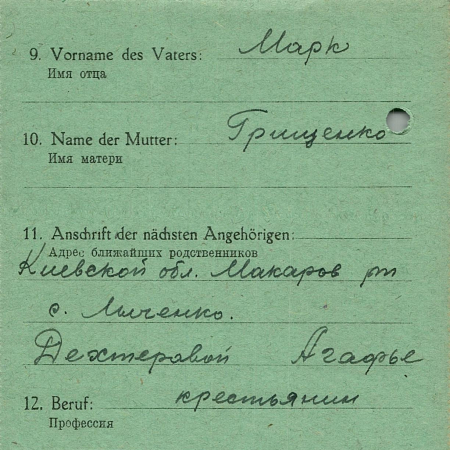 9. Vorname des Vaters: Марк
Имя отца
10. Name der Mutter: Грищенко
Имя матери
11. Anschrift der nächsten Angehörigen:
Адрес ближайших родственников
Киевской обл. Макаров рн
с. Лыченко.
Дехтеровой Агафье
12. Beruf: крестьянин
Профессия